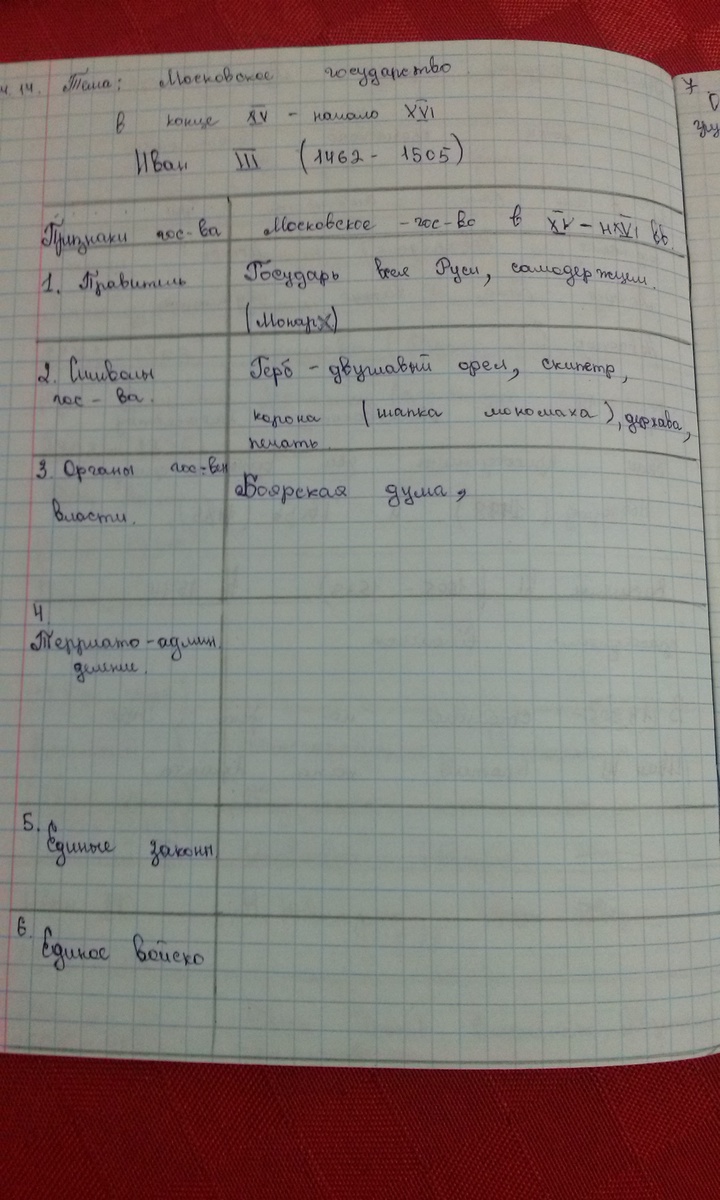 14. Тема: Московское государство
в конце XV - начало XVI
Иван III (1462 - 1505)
Признаки гос-ва Московское - гос-во в XV - н XVI вв.
1. Правитель Государь всея Руси, самодержец.
(Монарх)
2. Символы Герб - двуглавый орел, скипетр,
гос - ва. корона (шапка мономаха), держава,
печать
3. Органы гос-вен Боярская дума,
власти.
4.
Терриато-админ.
деление.
5.
Единые законы
6.
Единое войско
7